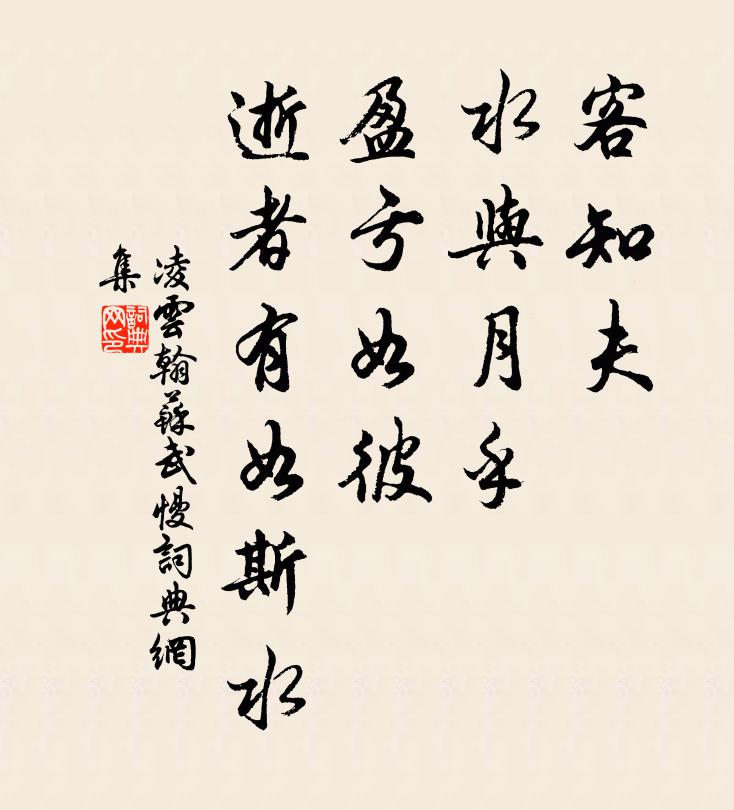 客知夫
水與月乎
盈亏如彼
逝者有如斯水
凌雲翰蘇武慢詞典網
集
詞典
网印